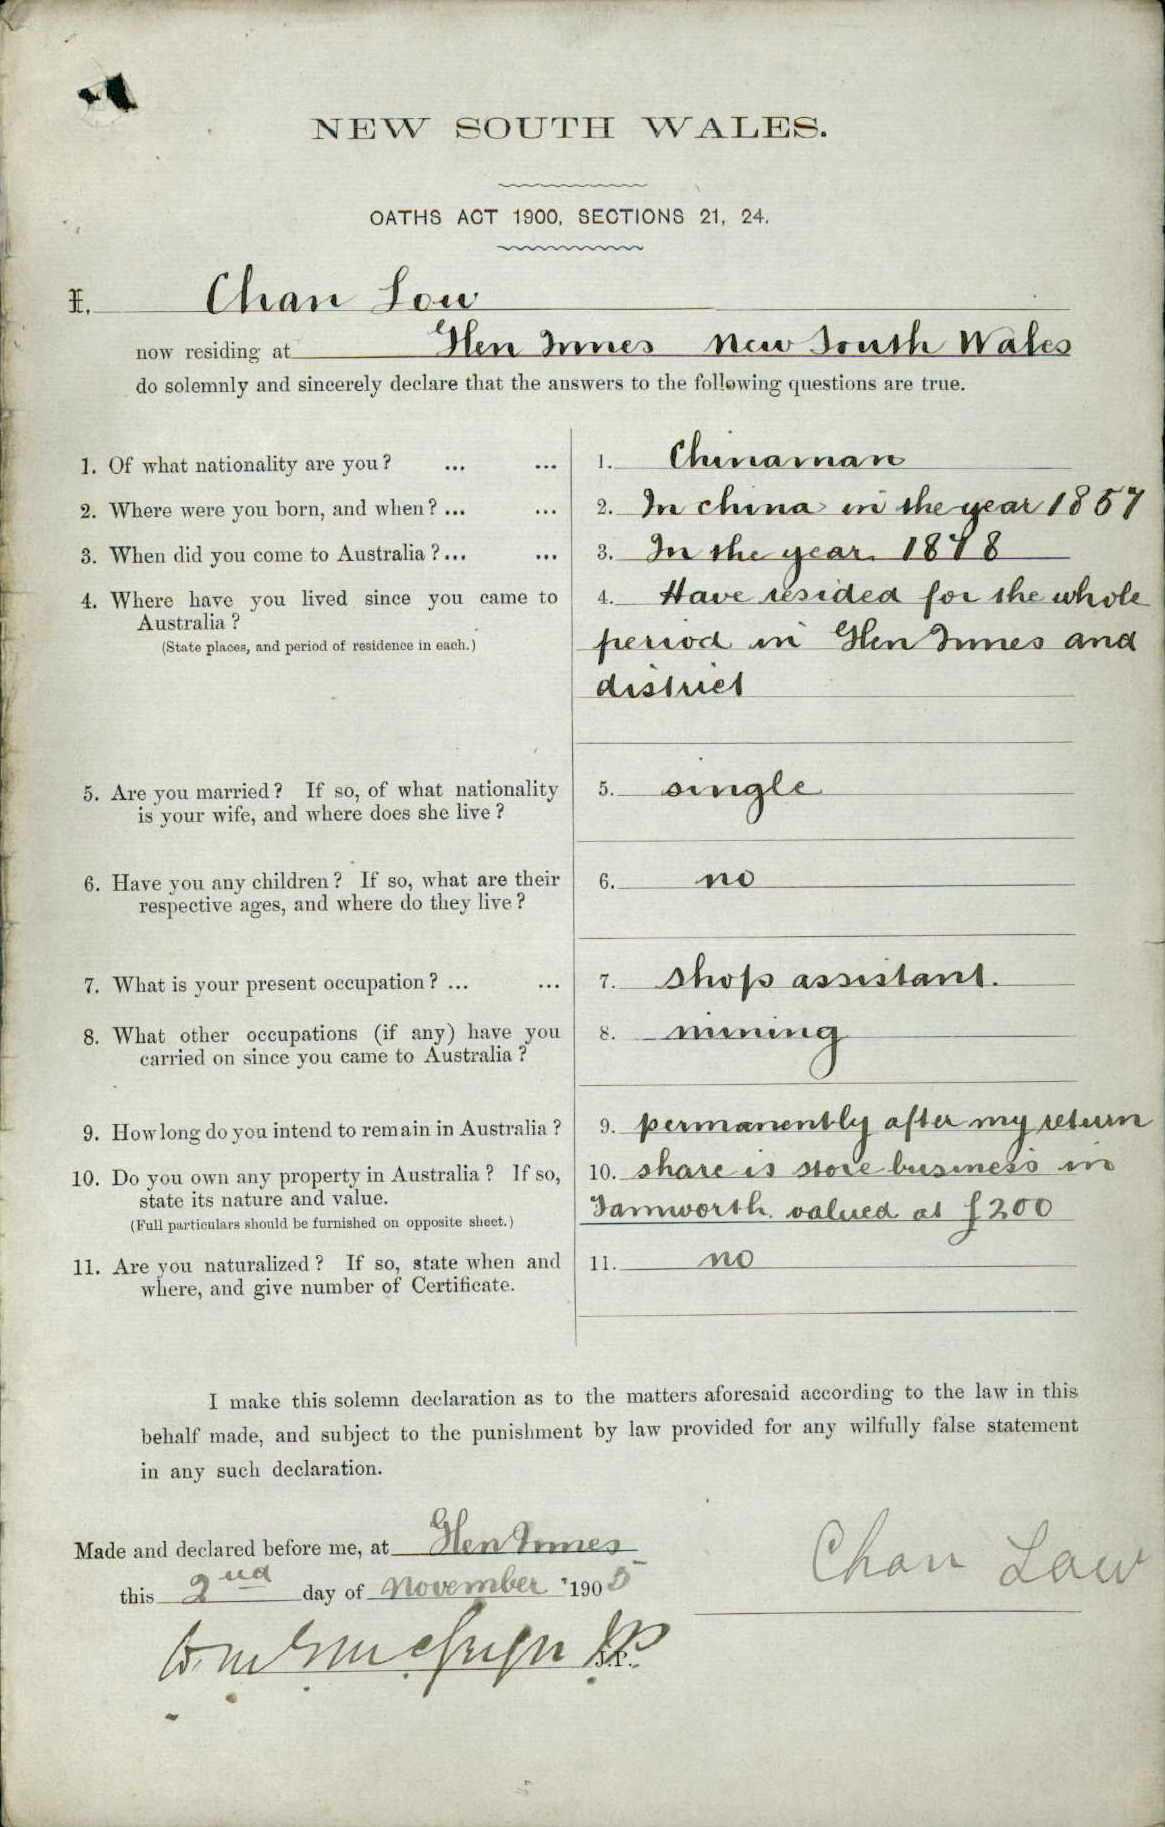 NEW SOUTH WALES.
OATHS ACT 1900, SECTIONS 21, 24.
I, Chan Low
now residing at Glen Innes New South Wales
do solemnly and sincerely declare that the answers to the following questions are true.
1. Of what nationality are you? ... ... 1. Chinaman
2. Where were you born, and when? ... ... 2. In china in the year 1857
3. When did you come to Australia? ... ... 3. In the year 1878
4. Where have you lived since you came to 4. Have resided for the whole
Australia?
(State places, and period of residence in each.) period in Glen Innes and
district
5. Are you married? If so, of what nationality 5. single
is your wife, and where does she live?
6. Have you any children? If so, what are their 6. no
respective ages, and where do they live?
7. What is your present occupation? ... ... 7. shop assistant.
8. What other occupations (if any) have you 8. mining
carried on since you came to Australia?
9. How long do you intend to remain in Australia? 9. permanently after my return
10. Do you own any property in Australia? If so, 10. share is store business in
state its nature and value. Tamworth valued at £200
(Full particulars should be furnished on opposite sheet.)
11. Are you naturalized? If so, state when and 11. no
where, and give number of Certificate.
I make this solemn declaration as to the matters aforesaid according to the law in this
behalf made, and subject to the punishment by law provided for any wilfully false statement
in any such declaration.
Made and declared before me, at Glen Innes
this 2nd day of November 1905
Chan Law
J.P.